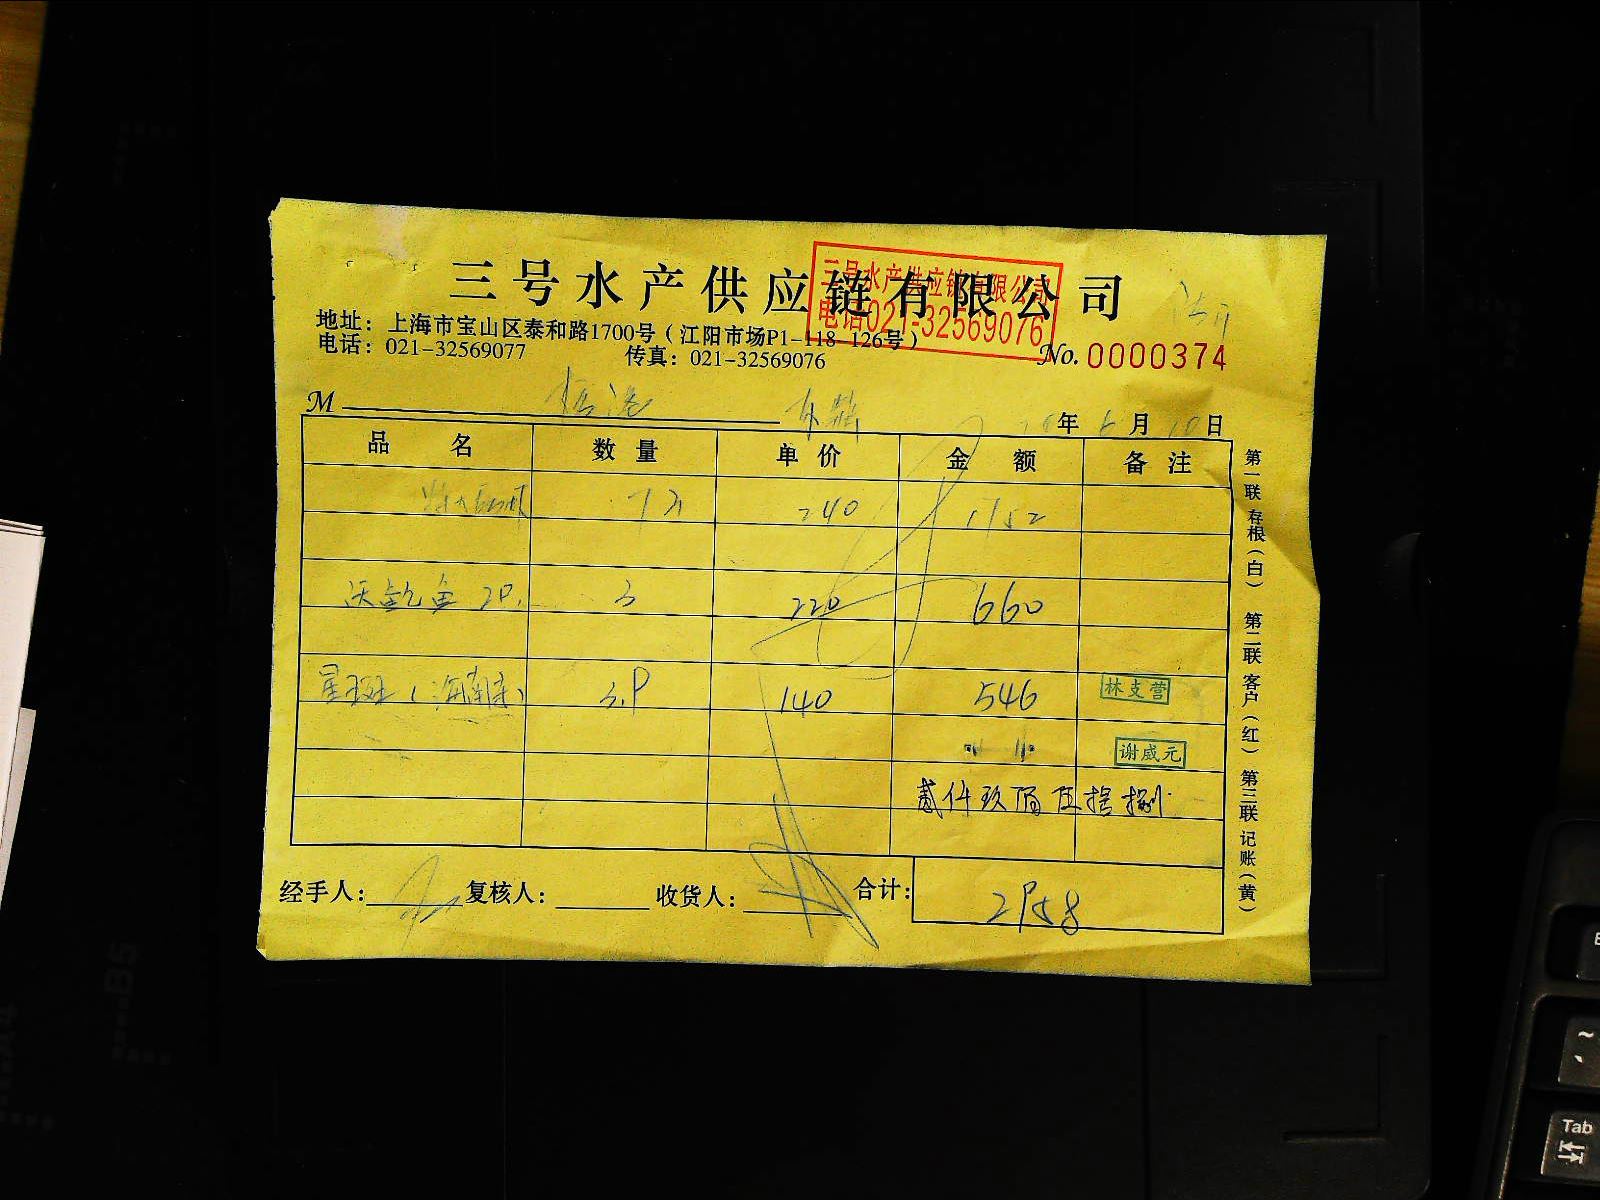 三号水产供应链有限公司
三号水产供应链有限公司
电话021-32569076
地址：上海市宝山区泰和路1700号（江阳市场P1-118-126号）
电话：021-32569077 传真：021-32569076
No. 0000374
M 年 6 月 10 日
品 名 数 量 单 价 金 额 备 注
240 1752
鱼 3 220 660
星斑（海南） 3.9 140 546
林支营
谢威元
贰仟玖佰伍拾捌
经手人： 复核人： 收货人： 合计： 2958
第一联 存根（白） 第二联 客户（红） 第三联 记账（黄）
Tab